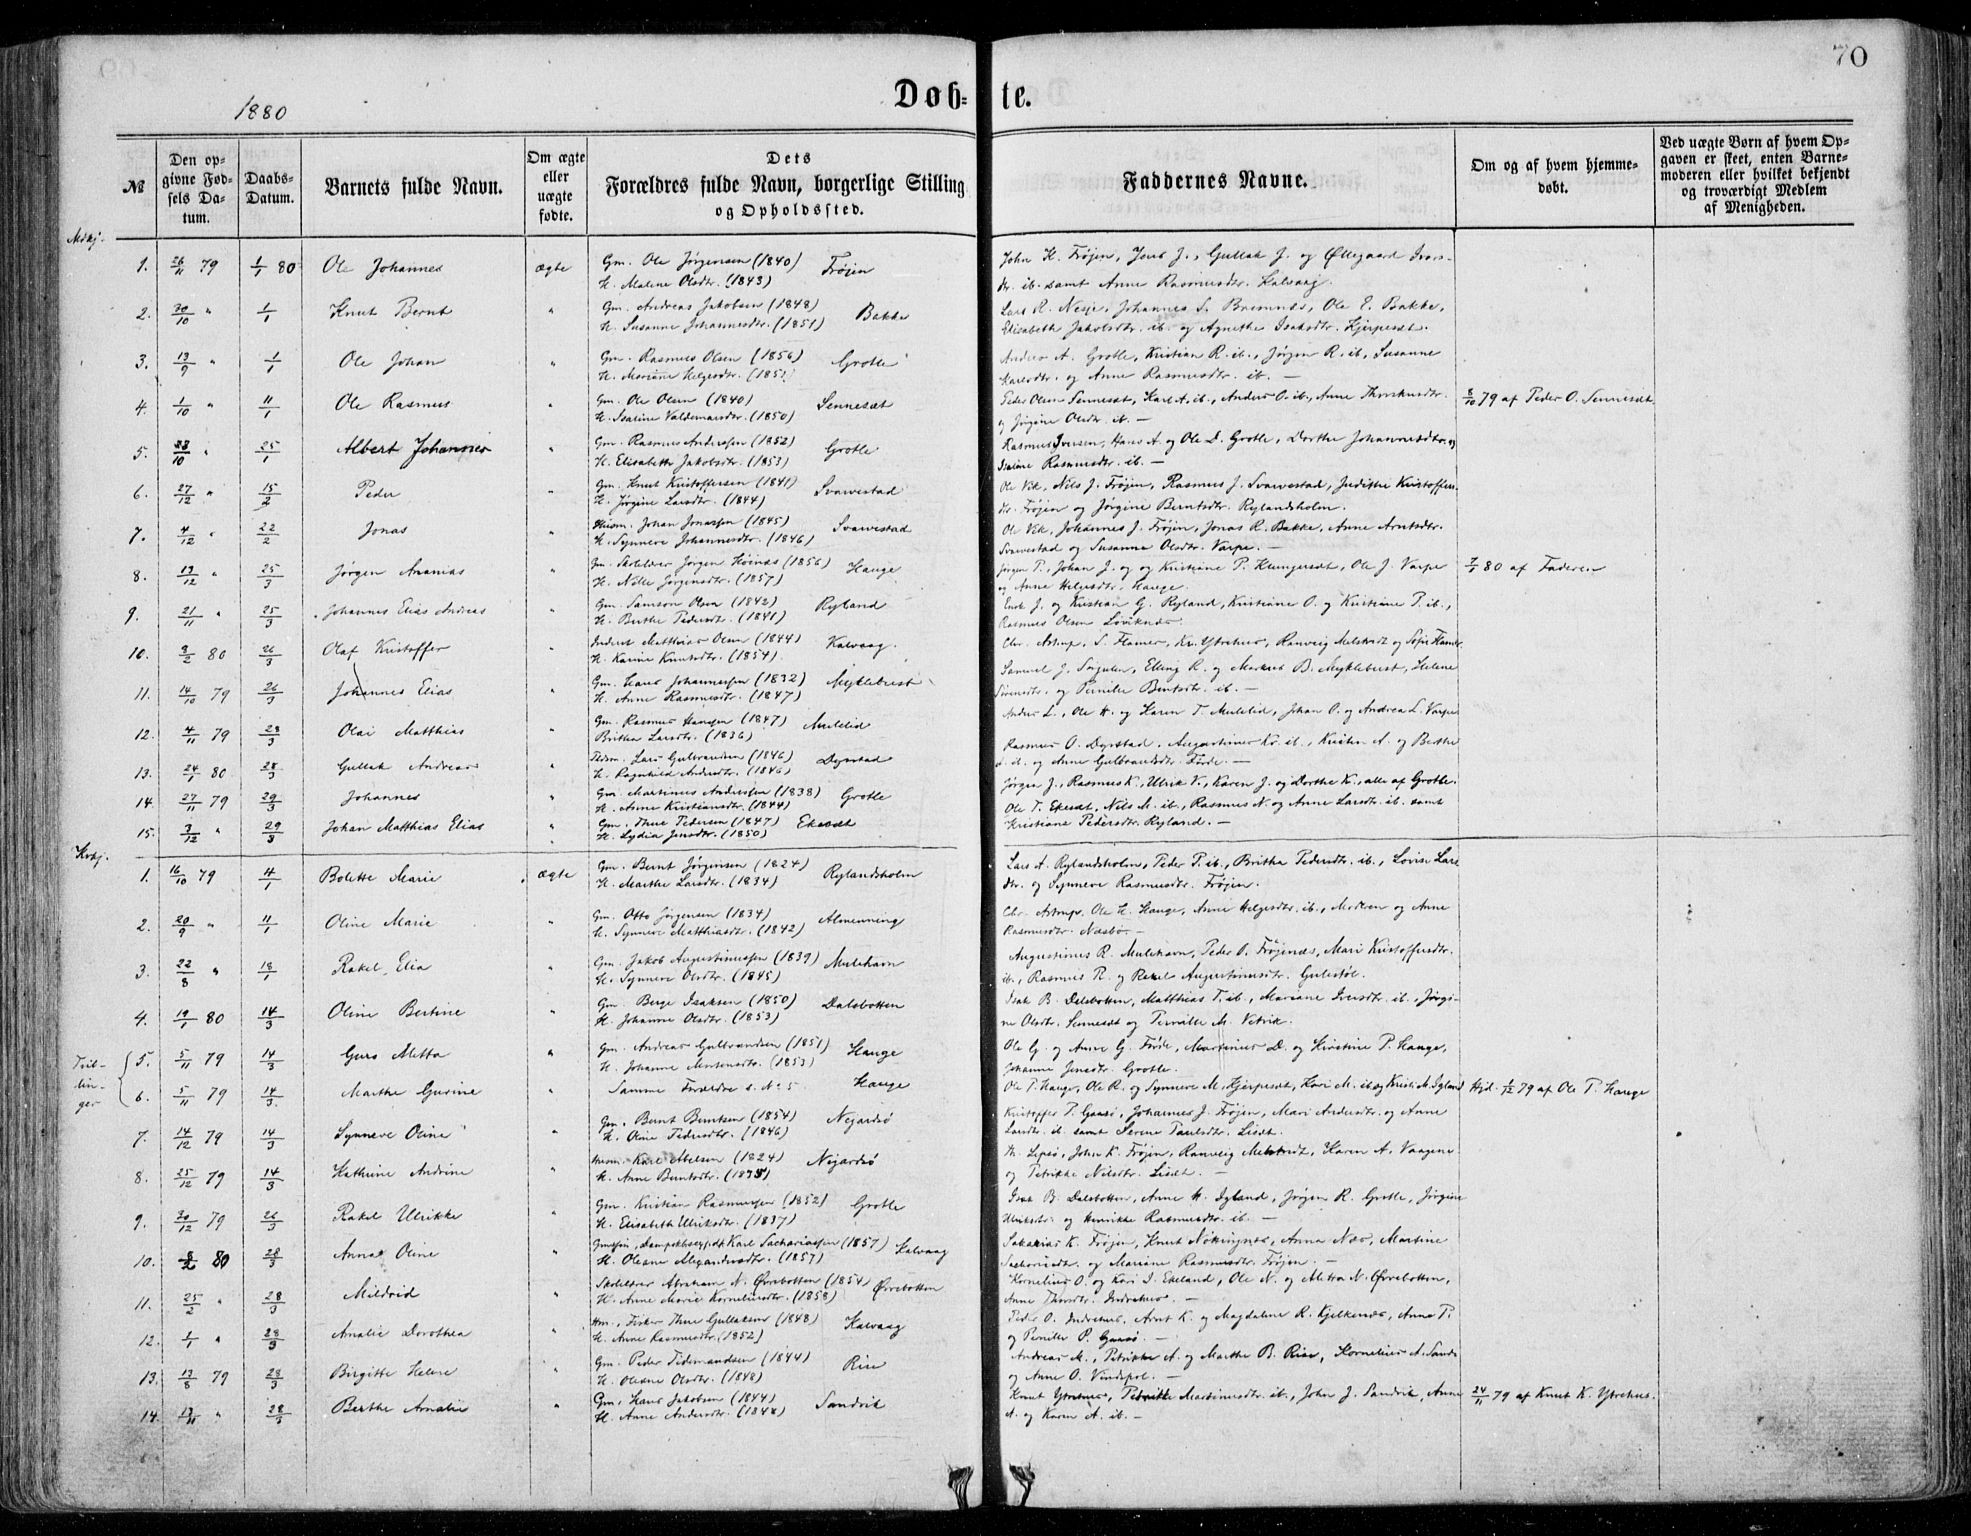 70
Døb=te.
1880
№
Den op=
givne Fød=
sels Da=
tum.
Daabs=
Datum.
Barnets fulde Navn.
Om ægte
eller
uægte
fødte.
Dets
Forældres fulde Navn, borgerlige Stilling
og Opholdssted.
Faddernes Navne.
Om og af hvem hjemme=
døbt.
Ved uægte Børn af hvem Op=
gaven er skeet, enten Barne=
moderen eller hvilket bekjendt
og troværdigt Medlem
af Menigheden.
Mdkj.
1. 26/11 79 1/1 80 Ole Johannes ægte Gm. Ole Jørgensen (1840) Frøjen
H. Malene Olsdtr. (1843)
John K. Frøjen, Jens J., Gullak J. og Øllegaard Ivers-
dtr. ib. samt Anne Rasmusdtr. Kalvaag.
2. 30/10 " 1/1 Knut Bernt " Gm. Andreas Jakobsen (1848) Bakke
H. Susanne Johannesdtr. (1851)
Lars R. Nesje, Johannes S. Bremnes, Ole E. Bakke,
Elisabeth Jakobsdtr. ib. og Agnethe Isaksdtr. Hjerpeset.
3. 13/9 " 1/1 Ole Johan " Gm. Rasmus Olsen (1856) Grotle
H. Mariane Helgesdtr. (1851)
Anders A. Grotle, Kristian R. ib., Jørgen R. ib., Susanne
Karlsdtr. og Anne Rasmusdtr. ib. —
4. 1/10 " 11/1 Ole Rasmus " Gm. Ole Olsen (1840) Sennesæt
H. Isaline Valdemarsdtr. (1850)
Peder Olsen Sennesæt, Karl A. ib., Anders O. ib., Anne
og Jørgine Olsdtr. ib. —
5/10 79 af Peder O. Sennesæt.
5. 28/10 " 25/1 Albert Johannes " Gm. Rasmus Anderssen (1852) Grotle
H. Elisabeth Jakobsdtr. (1853)
Rasmus Iversen, Hans A. og Ole D. Grotle, Dorthe Johannesdtr. og
Isaline Rasmusdtr. ib. —
6. 27/12 " 15/2 Peder " Gm. Knut Kristoffersen (1841) Svarvestad
H. Jørgine Larsdtr. (1844)
Ole Vik, Nils J. Frøjen, Rasmus J. Svarvestad, Judithe Kristoffers-
dtr. Frøjen og Jørgine Berntsdtr. Rylandsholm.
7. 4/12 " 22/2 Jonas " Husm. Johan Jonassen (1845) Svarvestad
H. Synneve Johannesdtr. (1846)
Ole Vik, Johannes J. Frøjen, Jonas R. Bakke, Anne Arntsdtr.
Svarvestad og Susanne Olsdtr. Varpe. —
8. 13/12 " 25/3 Jørgen Ananias " Gm. Skolelærer Jørgen Høinæs (1856) Hauge
H. Nille Jørgensdtr. (1857)
Jørgen P., Johan J. og og Kristiane P. Klungreset, Ole J. Varpe
og Anne Helgesdtr. Hauge.
7/1 80 af Faderen
9. 21/11 " 25/3 Johannes Elias Andreas " Gm. Samson Olsen (1842) Ryland
H. Berthe Pedersdtr. (1841)
Enok J. og Kristian G. Ryland, Kristiane O. og Kristiane P. ib.,
Rasmus Olsen Løviknes.
10. 3/2 80 26/3 Olaf Kristoffer " Inderst Matthias Olsen (1844) Kalvaag.
H. Karine Knutsdtr. (1854).
Chr. Astrup, S. Flamer, Kr. Ytrehus, Ranveig Melstvedt og Sofie Flamer
11. 14/10 79 26/3 Johannes Elias " Gm. Hans Johannessen (1832) Myklebust
H. Anne Rasmusdtr. (1847)
Samuel J. Sørgulen, Elling R. og Markus B. Myklebust, Helene
Simensdtr. og Pernille Berntsdtr. ib. —
12. 4/11 79 28/3 Olai Matthias " Gm. Rasmus Hansen (1847) Mulelid
Britha Larsdtr. (1836)
Anders L., Ole H. og Karen T. Mulelid, Johan O. og Andrea L. Varpe
13. 24/1 80 28/3 Gullak Andreas " Lars Gulbrandsen (1846) Dyrstad
H. Ragnhild Andersdtr. (1846)
Rasmus O. Dyrstad, Augustinus Kr. ib., Kristen A. og Berthe
ib. og Anne Gulbrandsdtr. Førde. —
14. 27/11 79 29/3 Johannes " Gm. Martinus Anderssen (1838) Grotle
H. Anne Kristiansdtr. (1844)
Jørgen J., Rasmus K., Ulrik V., Karen J. og Dorthe K., alle af Grotle.
15. 3/12 " 29/3 Johan Matthias Elias " Gm. Thue Pedersen (1847) Ekesæt
H. Lydia Jensdtr. (1850)
Ole T. Ekesæt, Nils M. ib., Rasmus N. og Anne Larsdtr. ib. samt
Kristiane Pedersdtr. Ryland. —
Kvkj.
1. 16/10 79 4/1 Bolette Marie ægte Gm. Bernt Jørgensen (1824) Rylandsholm
H. Marthe Larsdtr. (1834)
Lars A. Rylandsholm, Peder P. ib., Britha Pedersdtr. ib., Lovise Lars-
dtr. og Synneve Rasmusdtr. Frøjen.
2. 20/9 " 11/1 Oline Marie " Gm. Otto Jørgensen (1834) Almenning
H. Synneve Matthiasdtr. (1842)
Chr. Astrup, Ole H. Hauge, Anne Helgesdtr. ib., Moderen og Anne
Rasmusdtr. Næsbø. —
3. 22/8 " 18/1 Rakel Elia " Gm. Jakob Augustinussen (1839) Mulehavn
H. Synneve Olsdtr. (1845)
Augustinus R. Mulehavn, Peder O. Frøjenes, Mari Kristoffersdtr.
ib., Rasmus R. og Rakel Augustinusdtr. Gulestøl.
4. 19/1 80 14/3 Oline Bertine " Gm. Berge Isaksen (1850) Dalsbotten
H. Johanne Olsdtr. (1853)
Isak B. Dalsbotten, Matthias T. ib., Mariane Iversdtr. ib., Jørgi-
ne Olsdtr. Sennesæt og Pernille M. Vetvik.
Tvil-
lin-
ger
5. 5/11 79 14/3 Guro Mitta " Gm. Andreas Gulbrandsen (1851) Hauge
H. Johanne Mortensdtr. (1853)
Ole G. og Anne G. Førde, Martinus D. og Kirstine P. Hauge,
Johanne Jensdtr. Grotle.
6. 5/11 79 14/3. Marthe Gurine " Samme Forældre s. No 5 Hauge
Ole P. Hauge, Ole R. og Synneve M. Hjerpesæt, Kari M. ib. og Kristi M. Igland
Hjd. 1/12 79 af Ole P. Hauge
7. 14/12 79 14/3 Synneve Oline " Gm. Bernt Berntsen (1854) Nejardsø
H. Oline Pedersdtr. (1846)
Kristoffer P. Gaasø, Johannes J. Frøjen, Mari Andersdtr. og Anne
Larsdtr. ib. samt Serene Paulsdtr. Lisæt.
8. 25/12 79 14/3 Kathrine Andrine " Husm. Karl Abelsen (1824) Nejardsø
H. Anne Berntsdtr. (1835)
Th. Lepsø, John K. Frøjen, Ranveig Melstvedt, Karen A. Vaagene
og Petrikke Nilsdtr. Lisæt. —
9. 30/12 79 26/3 Rakel Ulrikke " Gm. Kristian Rasmussen (1852) Grotle
H. Elisabeth Ulriksdtr. (1837)
Isak B. Dalsbotten, Anne H. Igland, Jørgen R. Grotle, Jørgine
Ulriksdtr. og Henrikke Rasmusdtr. ib. —
10. 8/2 80 28/3 Anna Oline " Karl Sachariassen (1857) Kalvaag
H. Oleane Alexandersdtr. (1857)
Sakarias K. Frøjen, Knut Nøkingnes, Anna Næs, Martine
Sachariasdtr. og Mariane Rasmusdtr. Frøjen. —
11. 25/2 " 28/3 Mildrid " Skolelærer Abraham N. Øvrebotten (1854) Øvrebotten
H. Anne Marie Korneliusdtr. (1858)
Kornelius O. og Kari I. Ekeland, Ole N. og Mitta N. Øvrebotten,
Anne Thorsdtr. Indrehus. —
12. 1/1 " 28/3 Amalie Dorothea " Hm., Fisker Thue Gullaksen (1848) Kalvaag
H. Anne Rasmusdtr. (1852)
Peder O. Indrehus, Arnt K. og Magdalene R. Kjelkenes, Anne P.
og Pernille P. Gaasø. —
13. 13/8 79 28/3 Birgitte Helene " Gm. Peder Tidemandsen (1844) Rise
H. Oleane Olsdtr. (1848)
Andreas M., Petrikke A. og Marthe B. Rise, Kornelius A. Sande
og Anne O. Vindspol. —
14. 13/11 " 28/3 Berthe Amalie " Gm. Hans Jakobsen (1844) Sandvik
H. Anne Andersdtr. (1848)
Knut Ytrehus, Petrikke Martinusdtr. ib., John J. Sandvik, Anne
A. og Karen A. ib. —
24/11 79 af Knut K. Ytrehus.